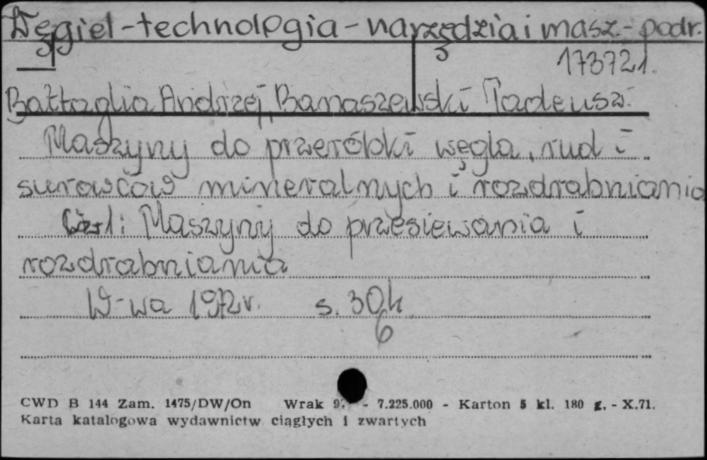 Węgiel - technologia - narzędzia i masz. - podr.
173721.
Battaglia Andrzej, Banaszewski Tadeusz.
Maszyny do przeróbki węgla, rud i
surowców mineralnych i rozdrabniania
Cz. I: Maszyny do przesiewania i
rozdrabniania
W-wa 1972 r. s. 30
6
CWD B 144 Zam. 1475/DW/On Wrak - 7.225.000 - Karton 5 kl. 180 g. - X.71.
Karta katalogowa wydawnictw ciągłych i zwartych